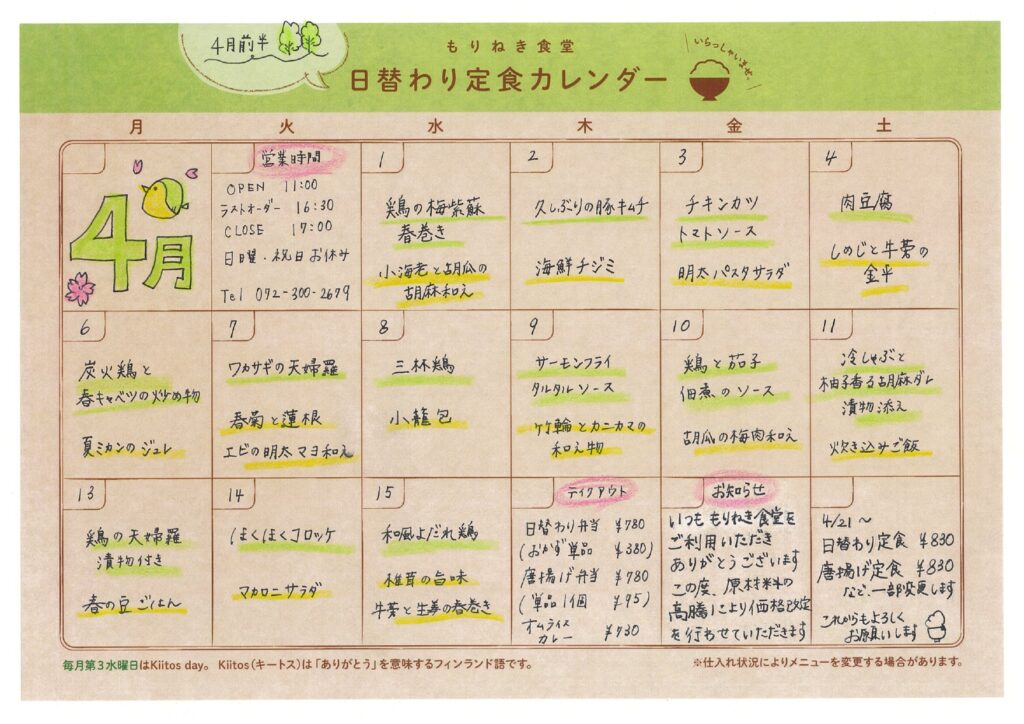 4月前半
もりねき食堂
日替わり定食カレンダー
いらっしゃいませ。
月 火 水 木 金 土
4月
営業時間
OPEN 11:00
ラストオーダー 16:30
CLOSE 17:00
日曜・祝日お休み
Tel 092-300-2679
1
鶏の梅紫蘇
春巻き
小海老と胡瓜の
胡麻和え
2
久しぶりの豚キムチ
海鮮チヂミ
3
チキンカツ
トマトソース
明太パスタサラダ
4
肉豆腐
しめじと牛蒡の
金平
6
炭火鶏と
春キャベツの炒め物
夏ミカンのジュレ
7
ワカサギの天婦羅
春菊と蓮根
エビの明太マヨ和え
8
三杯鶏
小龍包
9
サーモンフライ
タルタルソース
竹輪とカニカマの
和え物
10
鶏と茄子
佃煮のソース
胡瓜の梅肉和え
11
冷しゃぶと
柚子香る胡麻ダレ
漬物添え
炊き込みご飯
13
鶏の天婦羅
漬物付き
春の豆ごはん
14
ほくほくコロッケ
マカロニサラダ
15
和風よだれ鶏
椎茸の旨味
牛蒡と生姜の春巻き
テイクアウト
日替わり弁当 ¥780
(おかず単品 ¥380)
唐揚げ弁当 ¥780
(単品1個 ¥95)
オムライス
カレー ¥730
お知らせ
いつももりねき食堂を
ご利用いただき
ありがとうございます
この度、原材料の
高騰により価格改定
を行わせていただきます
4/21〜
日替わり定食 ¥830
唐揚げ定食 ¥830
など、一部変更します
これからもよろしく
お願いします
毎月第3水曜日はKiitos day。 Kiitos(キートス)は「ありがとう」を意味するフィンランド語です。
※仕入れ状況によりメニューを変更する場合があります。